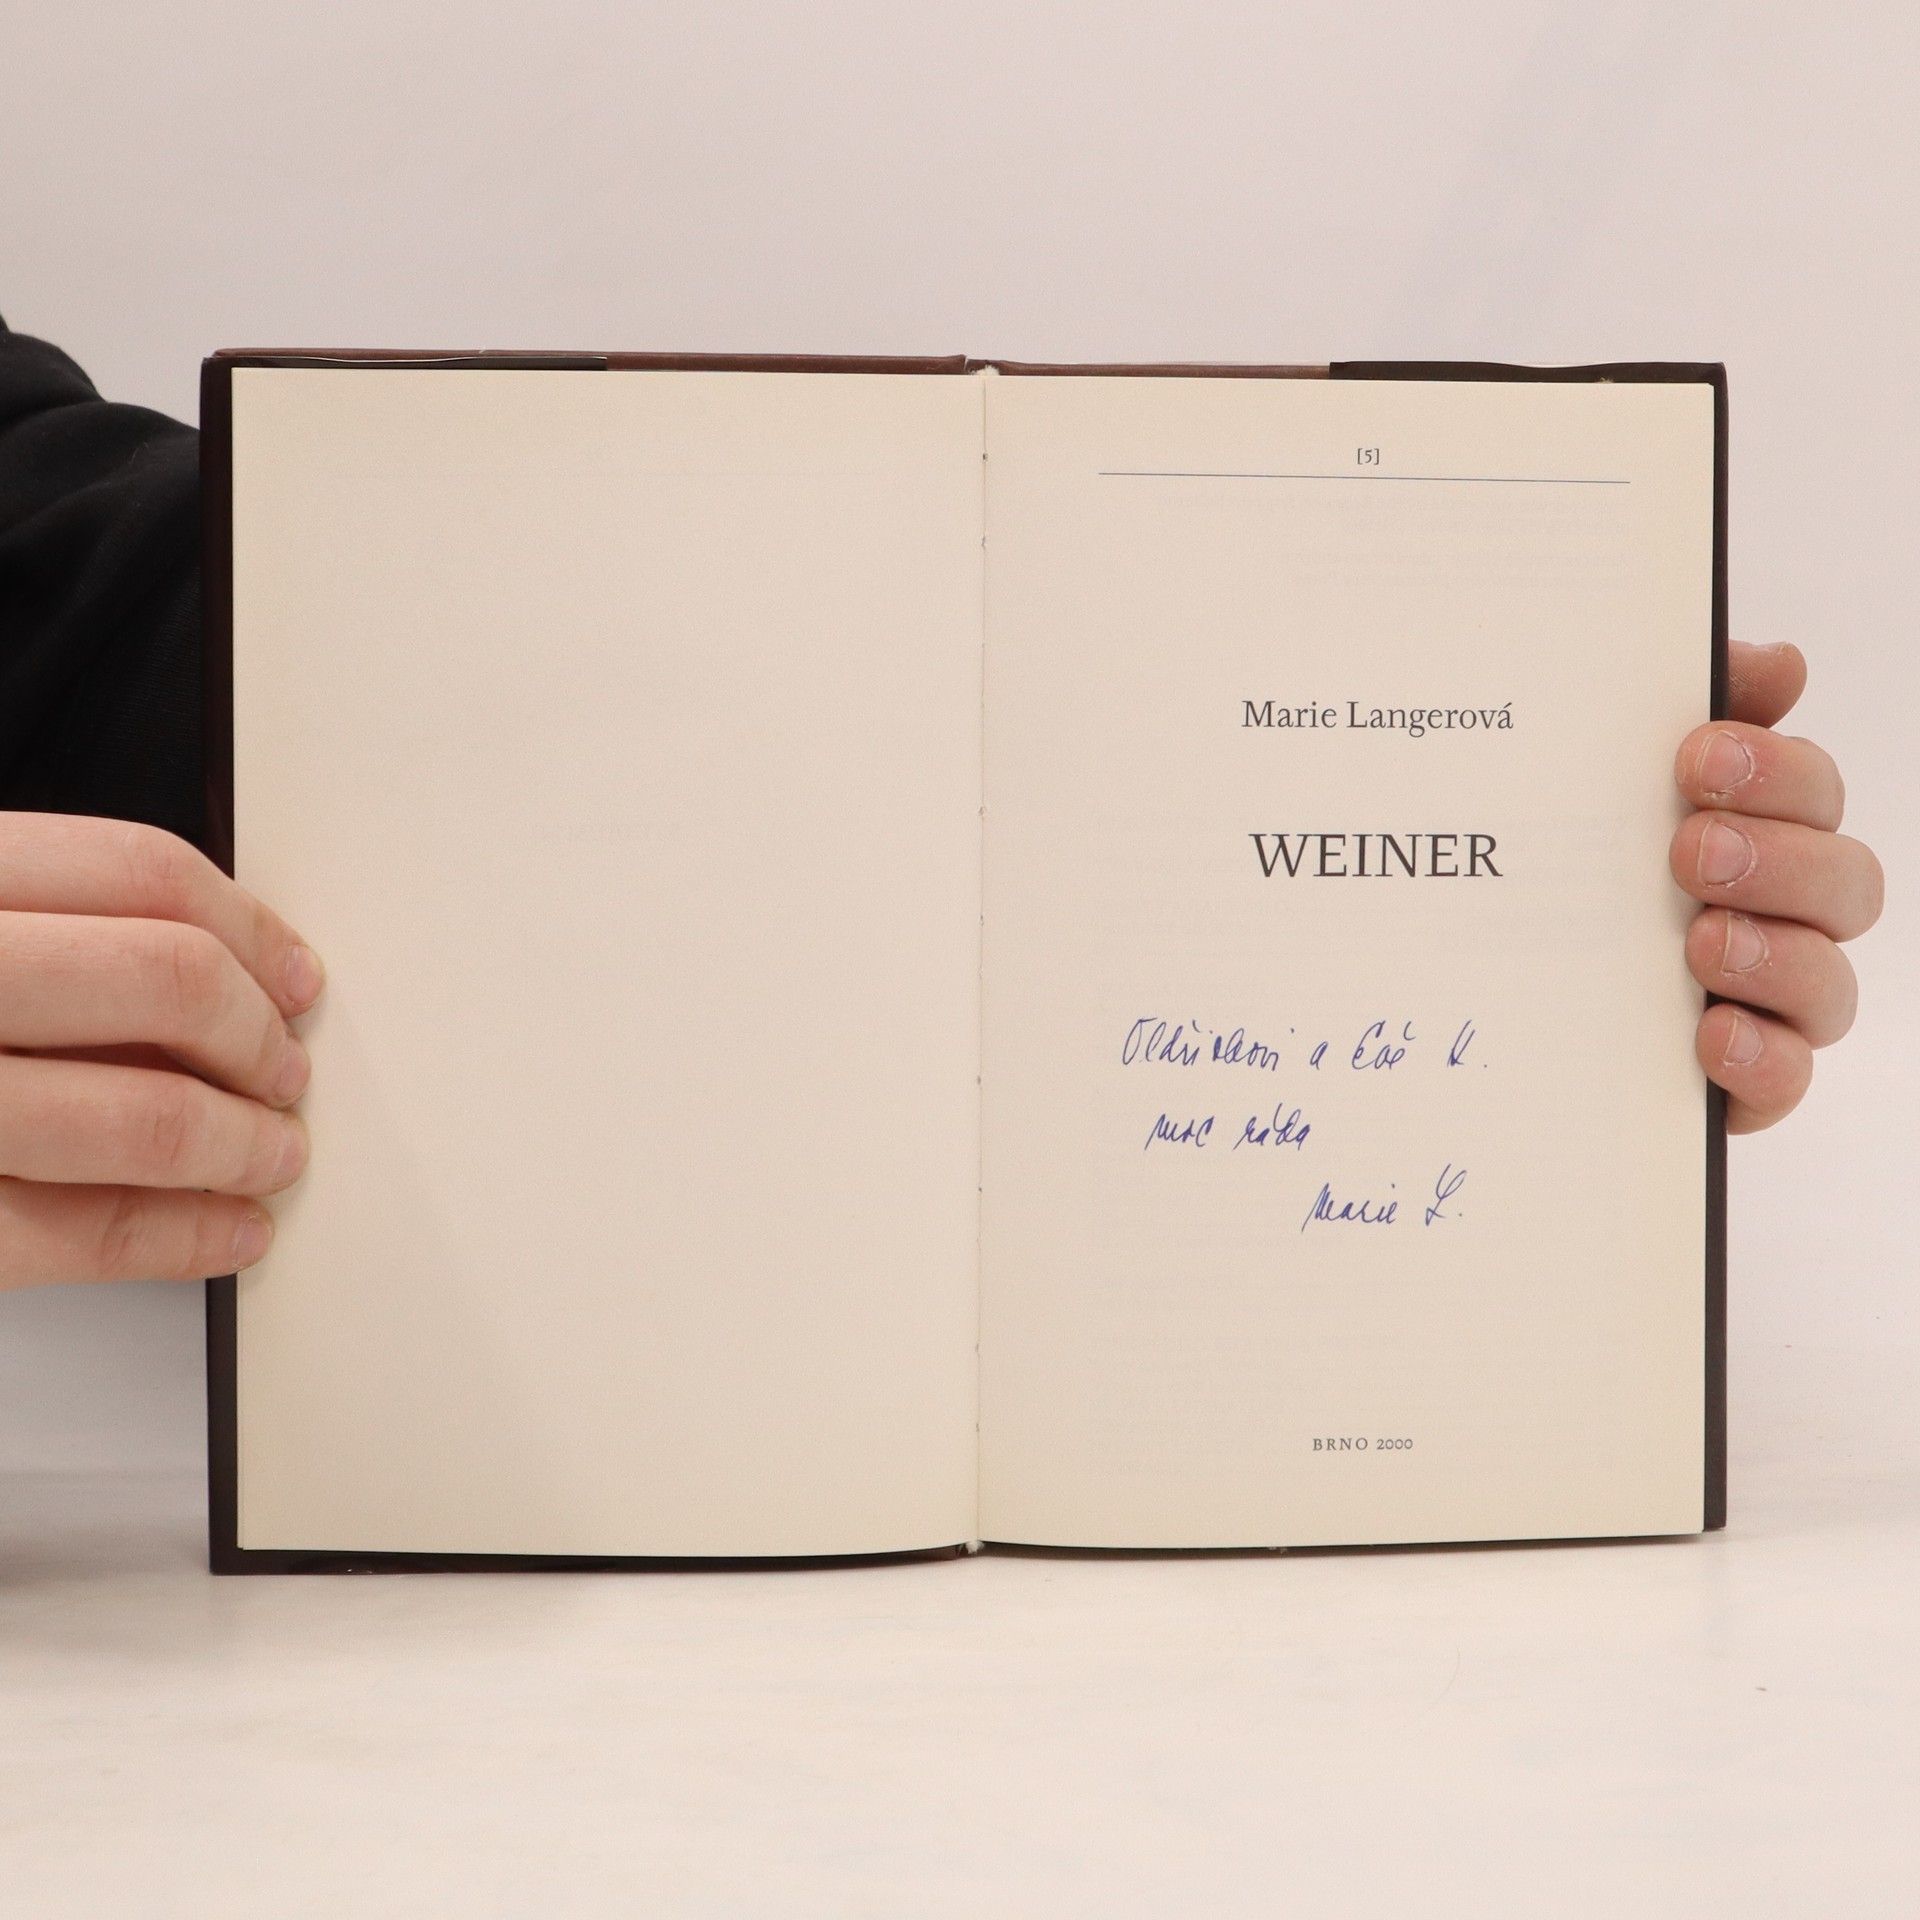 [5]
Marie Langerová
WEINER
Oldřichovi a Evě H.
moc ráda
Marie L.
BRNO 2000